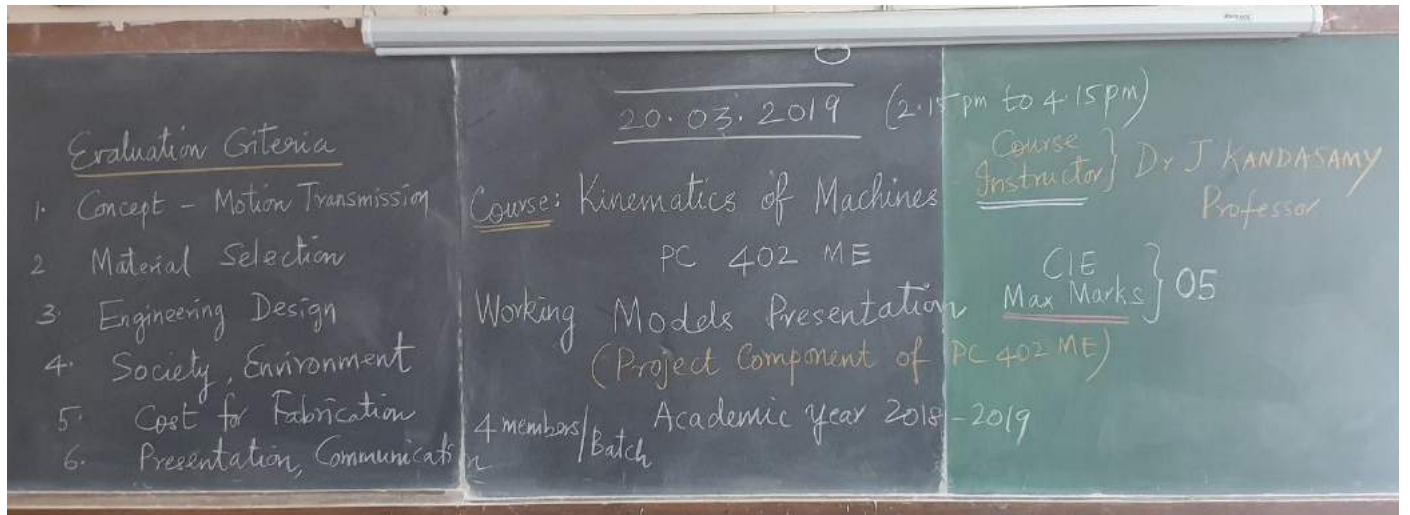 Evaluation Criteria
1. Concept - Motion Transmission
2 Material Selection
3. Engineering Design
4. Society, Environment
5. Cost for Fabrication
6. Presentation, Communication
20.03.2019 (2.15 pm to 4.15pm)
Course: Kinematics of Machines
PC 402 ME
Working Models Presentation
(Project Component of PC 402 ME)
Academic year 2018-2019
4 members/Batch
Course Instructor} Dr J KANDASAMY
Professor
CIE
Max Marks} 05